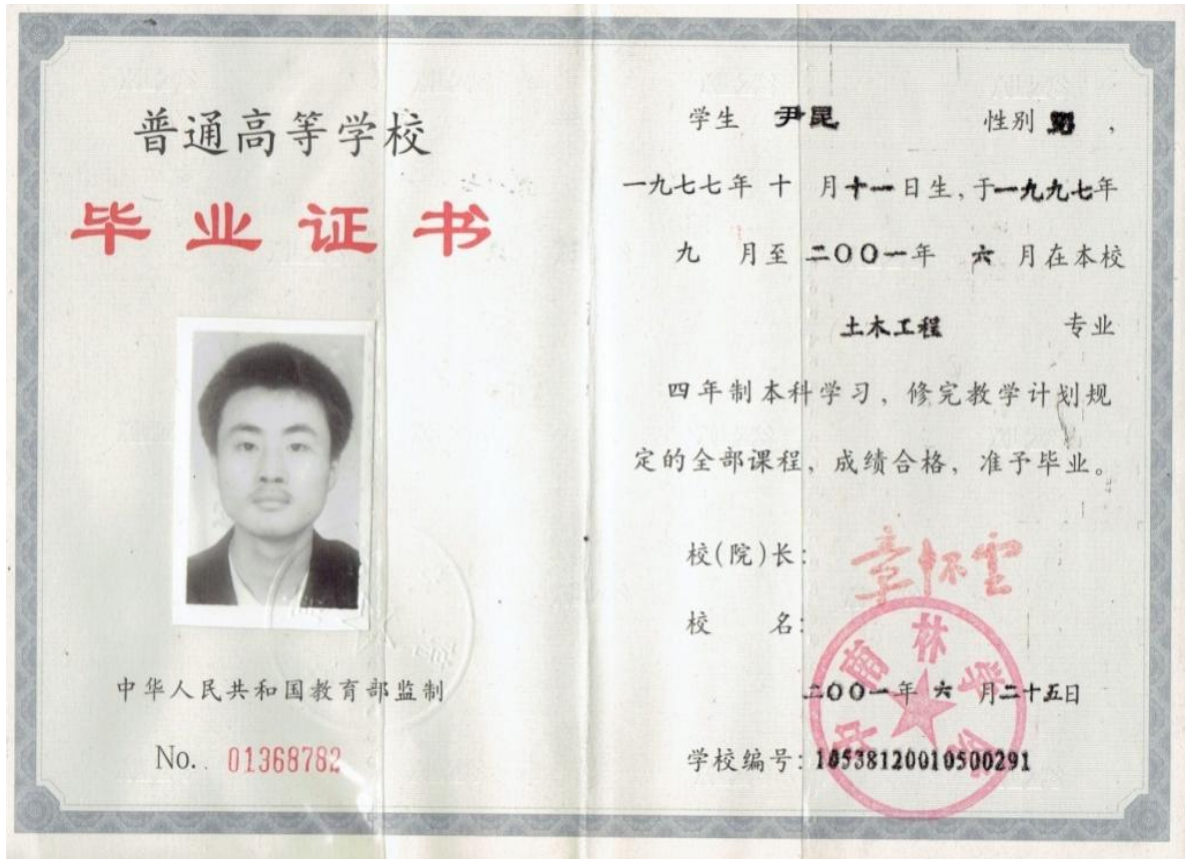 普通高等学校
毕业证书
中华人民共和国教育部监制
No. 01368782
学生 尹昆 性别 男 ,
一九七七年 十 月十一日生,于一九九七年
九 月至 二〇〇一年 六 月在本校
土木工程 专业
四年制本科学习,修完教学计划规
定的全部课程,成绩合格,准予毕业。
校(院)长:
章怀云
校 名:
中南林学院
二〇〇一年 六 月二十五日
学校编号:10538120010500291